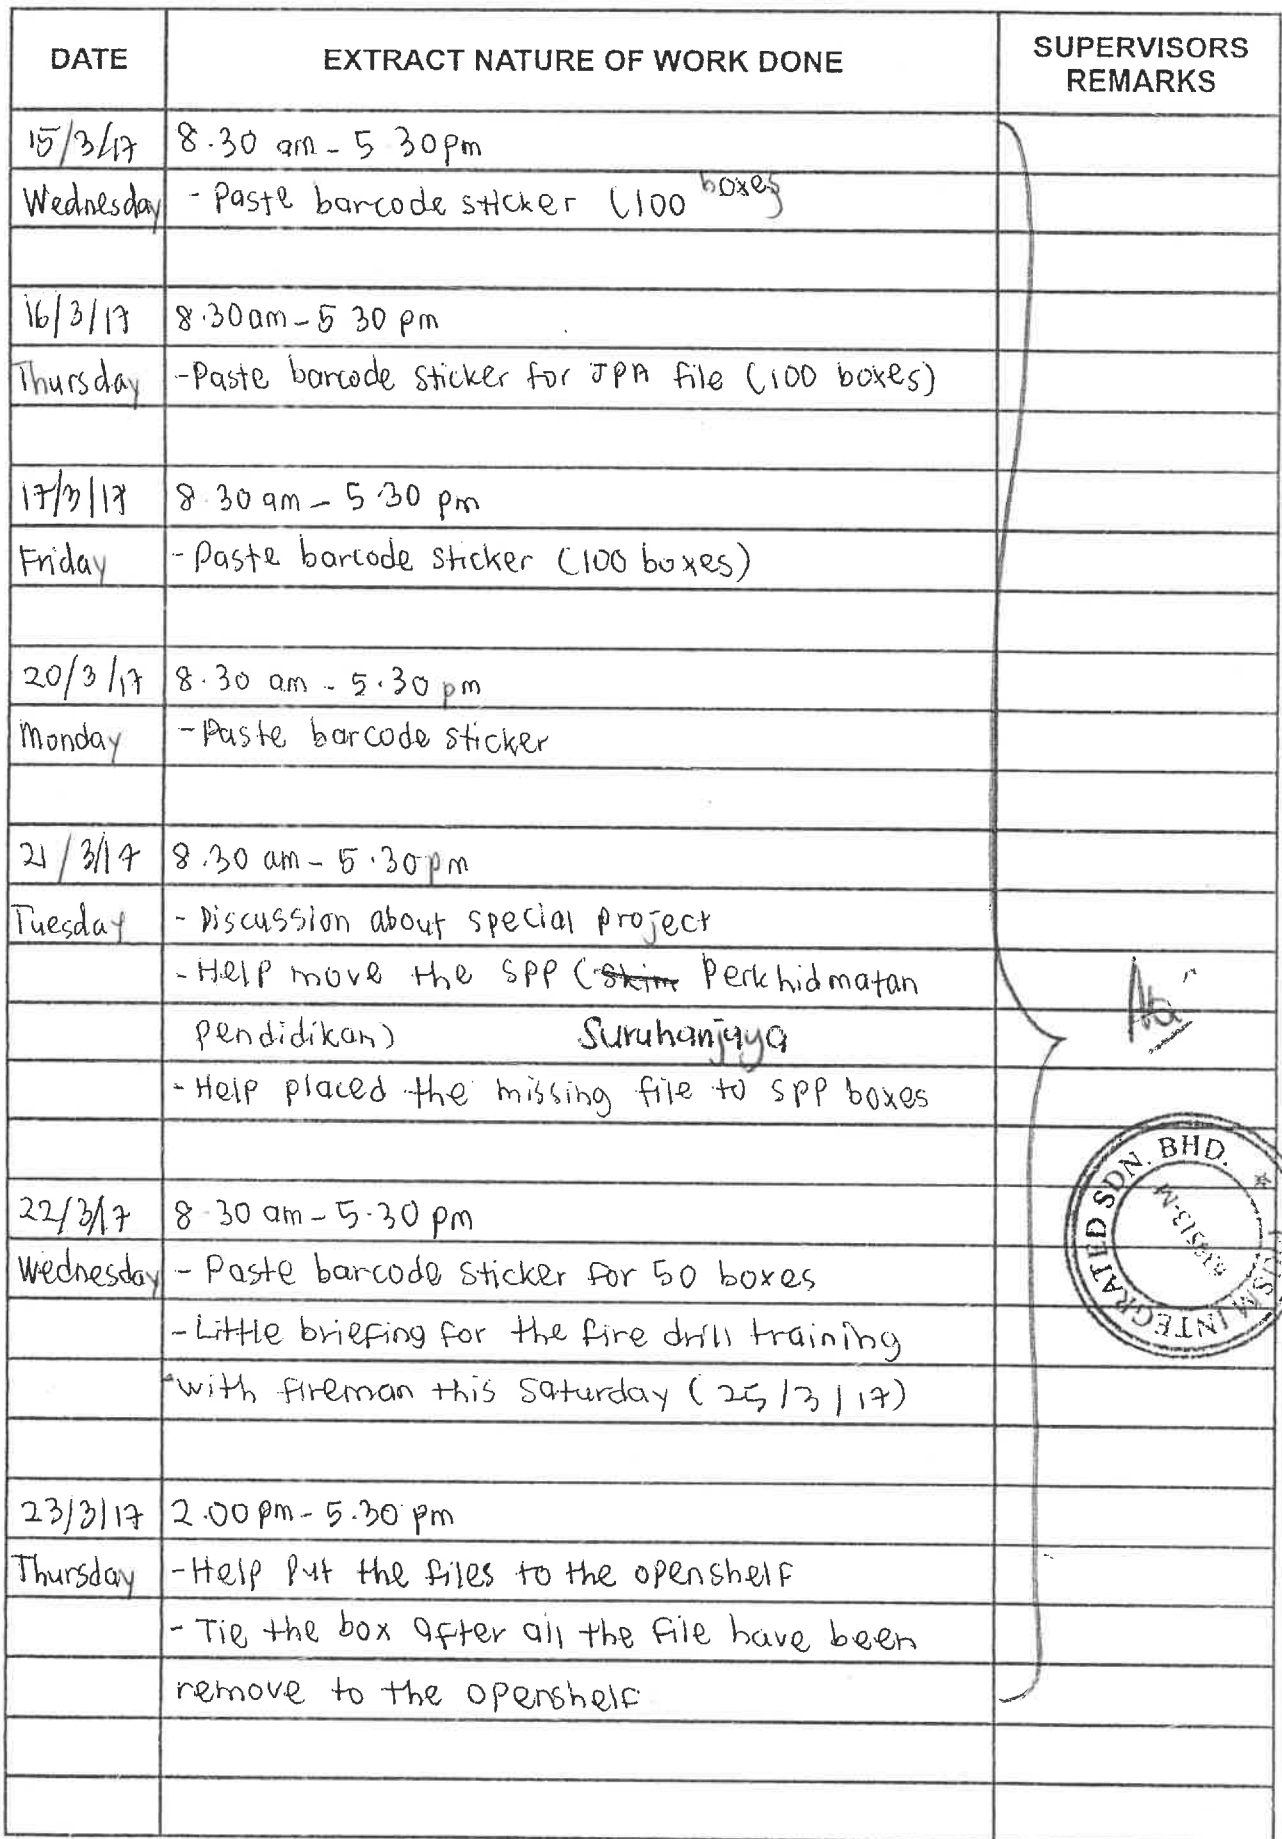 DATE EXTRACT NATURE OF WORK DONE SUPERVISORS REMARKS
15/3/17 8.30 am - 5 30pm
Wednesday - Paste barcode sticker (100 boxes)
16/3/17 8.30am - 5 30 pm
Thursday - Paste barcode sticker for JPA file (100 boxes)
17/3/17 8.30 am - 5.30 pm
Friday - Paste barcode sticker (100 boxes)
20/3/17 8.30 am - 5.30 pm
Monday - Paste barcode sticker
21/3/17 8.30 am - 5.30pm
Tuesday - Discussion about special project
- Help move the SPP (Skim Perkhidmatan
Pendidikan) Suruhanjaya
- Help placed the missing file to SPP boxes
22/3/17 8.30 am - 5.30 pm
Wednesday - Paste barcode sticker for 50 boxes
- Little briefing for the fire drill training
with fireman this Saturday (25/3/17)
23/3/17 2.00pm - 5.30 pm
Thursday - Help put the files to the openshelf
- Tie the box after all the file have been
remove to the openshelf
INTEGRATED SDN. BHD.